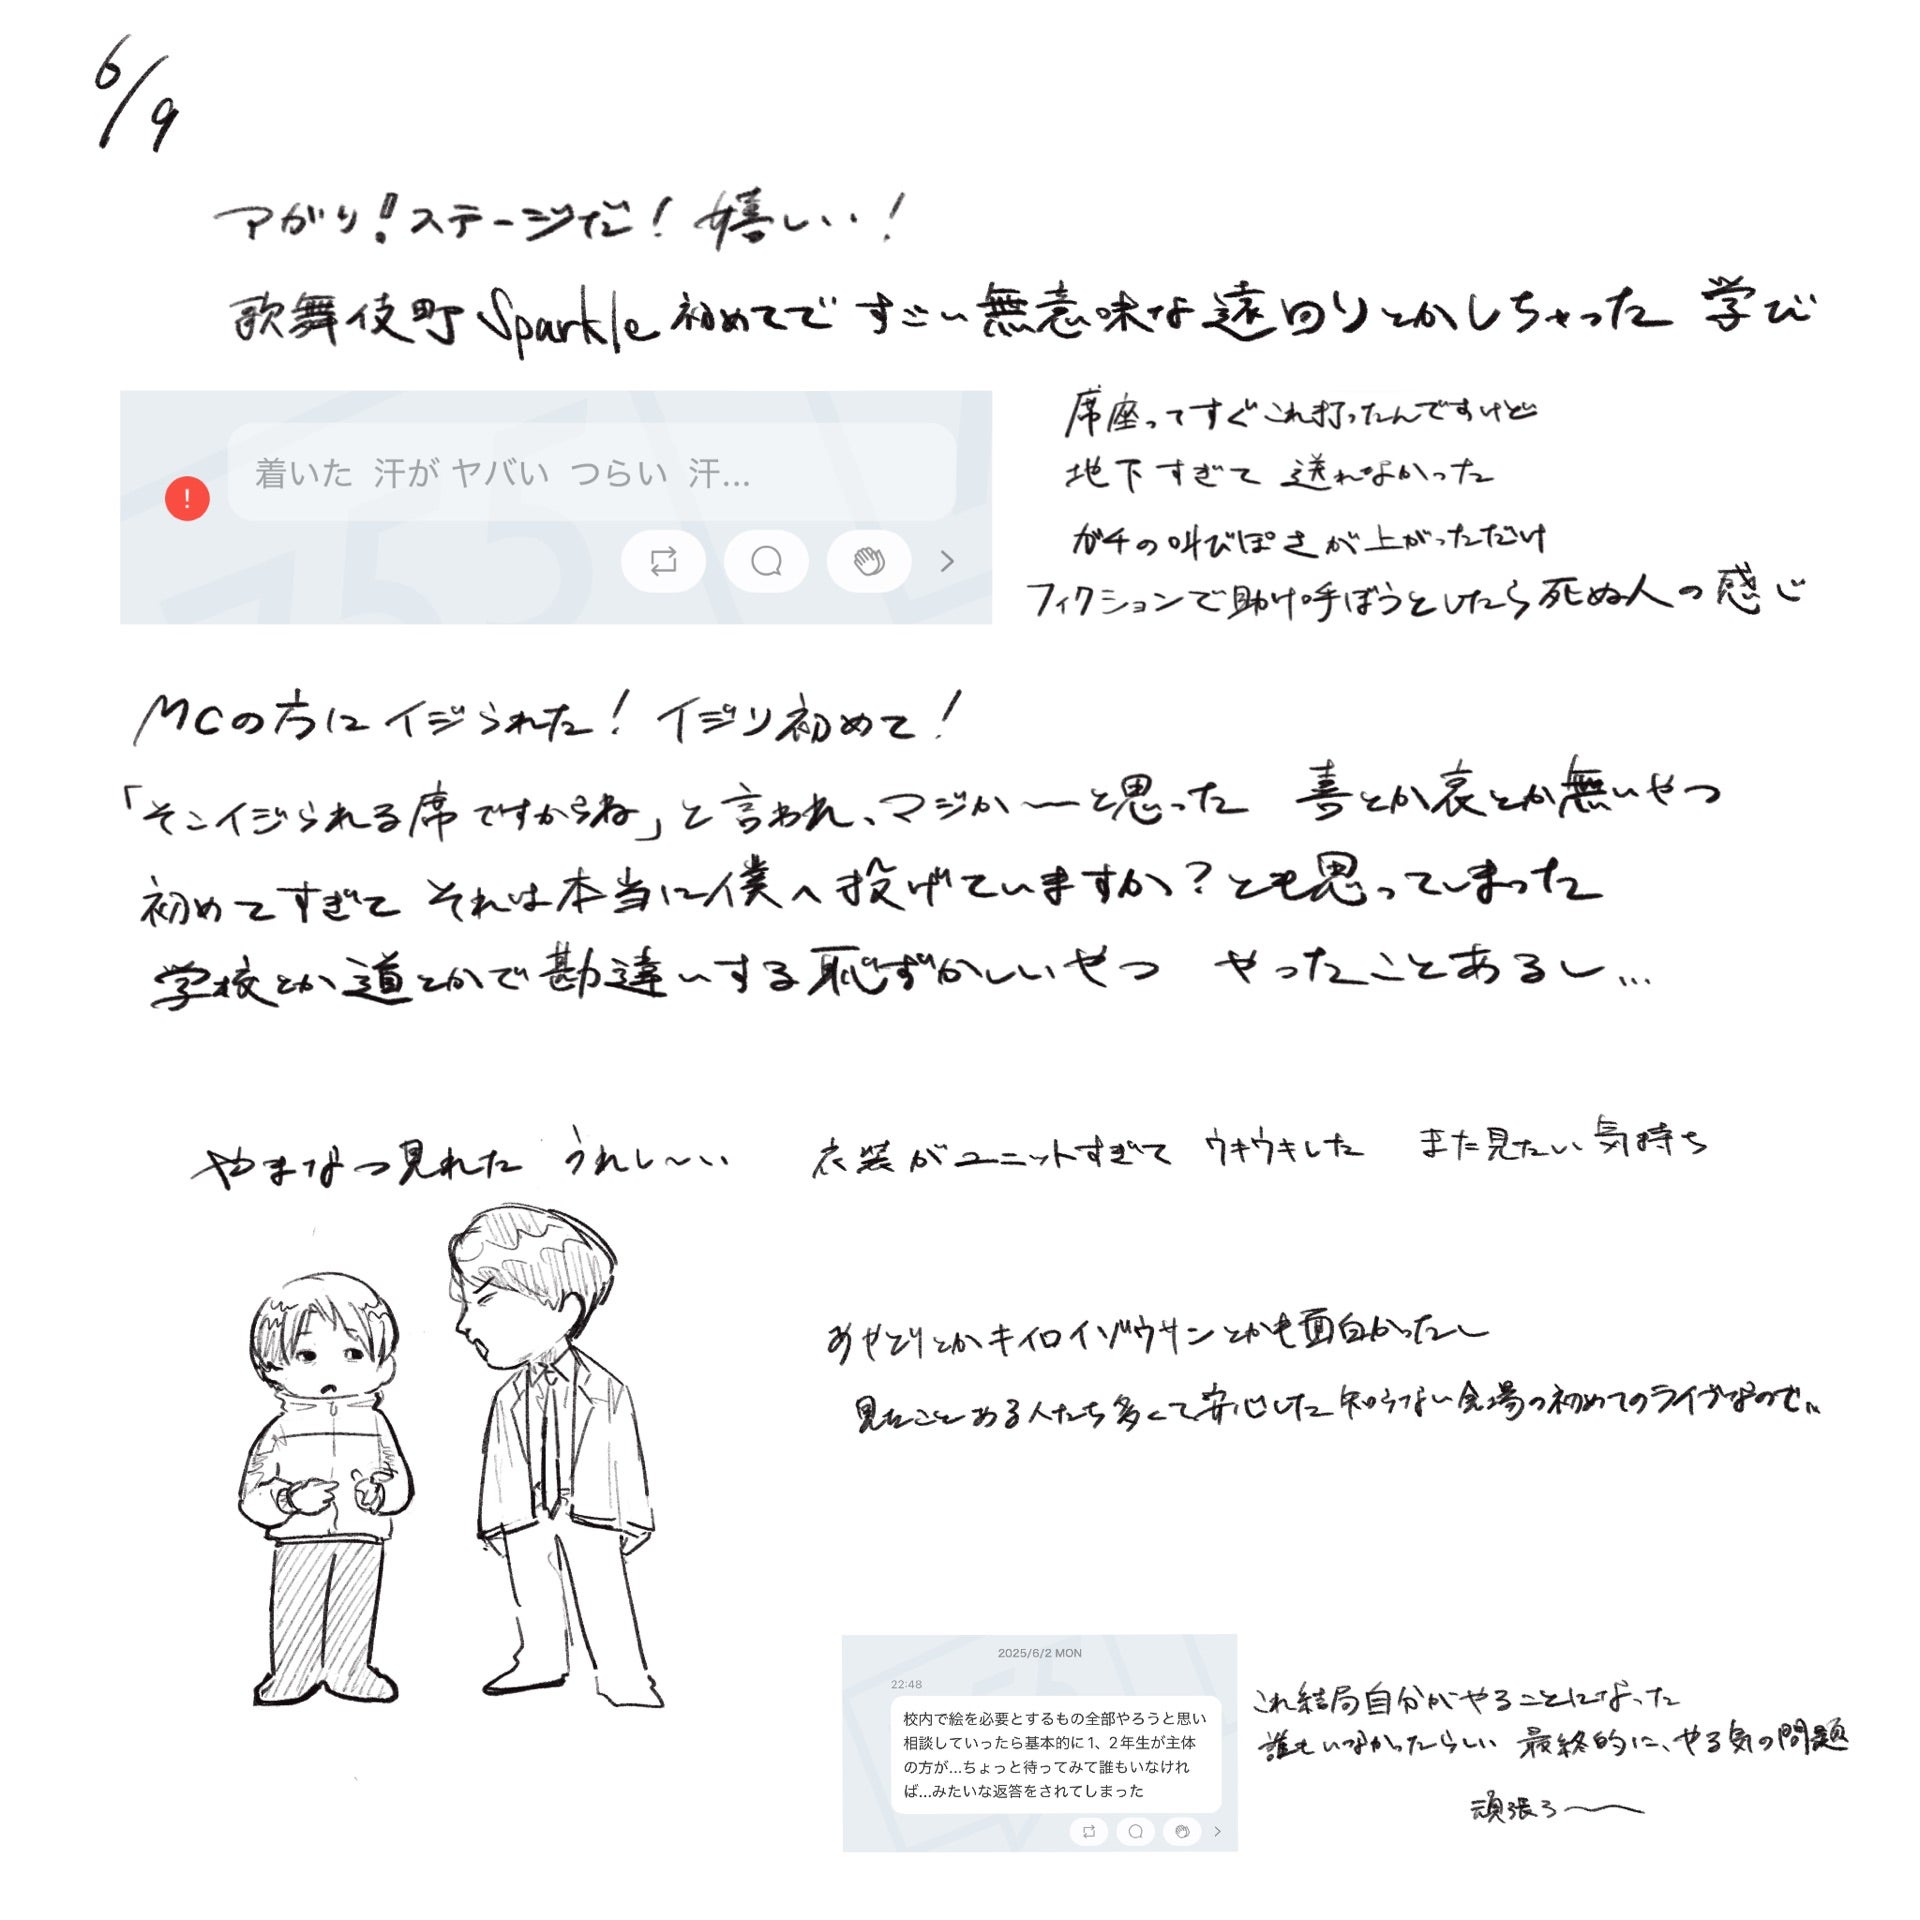 6/9
アがり!ステージだ!嬉しい…!
歌舞伎町Sparkle初めてで すごい無意味な遠回りとかしちゃった 学び
着いた 汗がヤバい つらい 汗...
席座ってすぐこれ打ったんですけど
地下すぎて 送れなかった
ガチの叫びぽさが上がっただけ
フィクションで助け呼ぼうとしたら死ぬ人の感じ
MCの方にイジられた!イジり初めて!
「そこイジられる席ですからね」と言われ、マジか〜と思った 喜とか哀とか無いやつ
初めてすぎて それは本当に僕へ投げていますか?とも思ってしまった
学校とか道とかで勘違いする恥ずかしいやつ やったことあるし…
やまなつ見れた うれし〜い
衣装がユニットすぎて ウキウキした また見たい気持ち
あやとりとかキイロイゾウサンとかも面白かったし
見たことある人たち多くて安心した 知らない会場の初めてのライブなので…
2025/6/2 MON
22:48
校内で絵を必要とするもの全部やろうと思い
相談していったら基本的に1、2年生が主体
の方が...ちょっと待ってみて誰もいなけれ
ば...みたいな返答をされてしまった
これ結局自分がやることになった
誰もいなかったらしい 最終的に、やる気の問題
頑張ろ〜